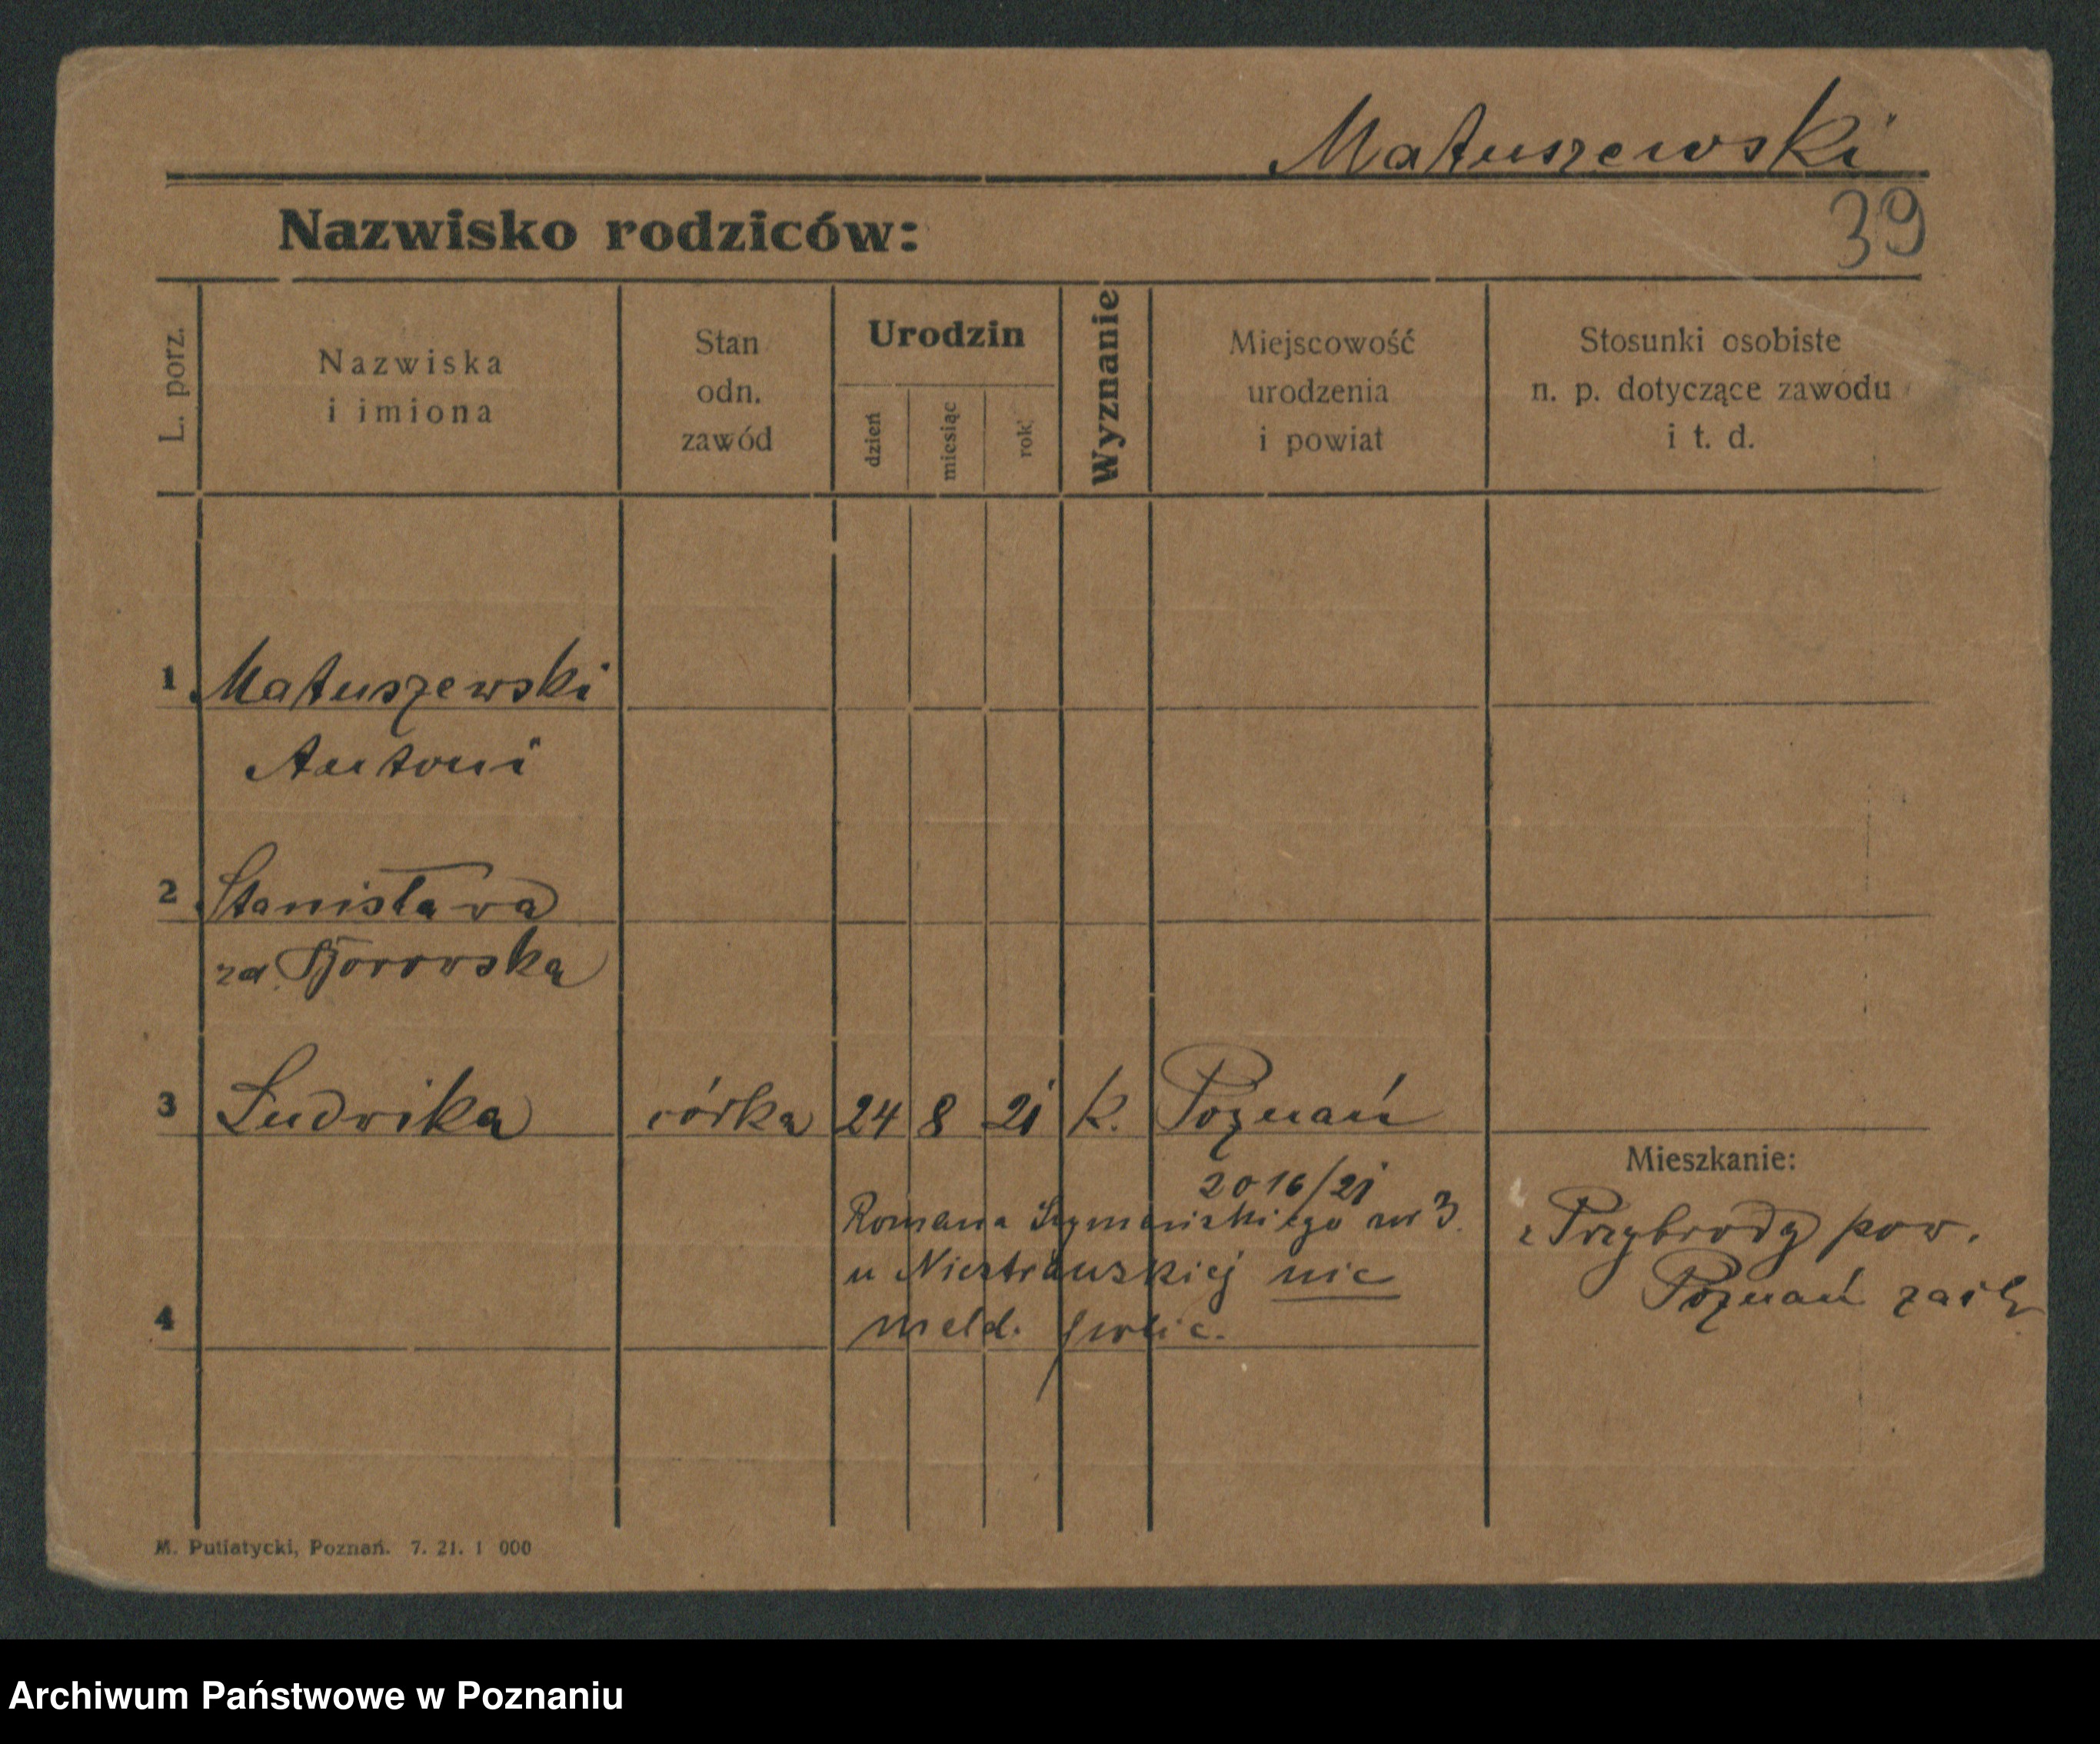 Matuszewski
39
Nazwisko rodziców:
L. porz.
Nazwiska
i imiona
Stan
odn.
zawód
Urodzin
dzień
miesiąc
rok
Wyznanie
Miejscowość
urodzenia
i powiat
Stosunki osobiste
n. p. dotyczące zawodu
i t. d.
1 Matuszewski
Antoni
2 Stanisława
Borowska
3 Ludwika córka 24 8 21 k. Poznań
2016/21
Romana Szymańskiego nr 3.
u nie
meld. polic.
4
Mieszkanie:
z Przybrody pow.
Poznań
M. Putiatycki, Poznań. 7. 21. 1 000
Archiwum Państwowe w Poznaniu